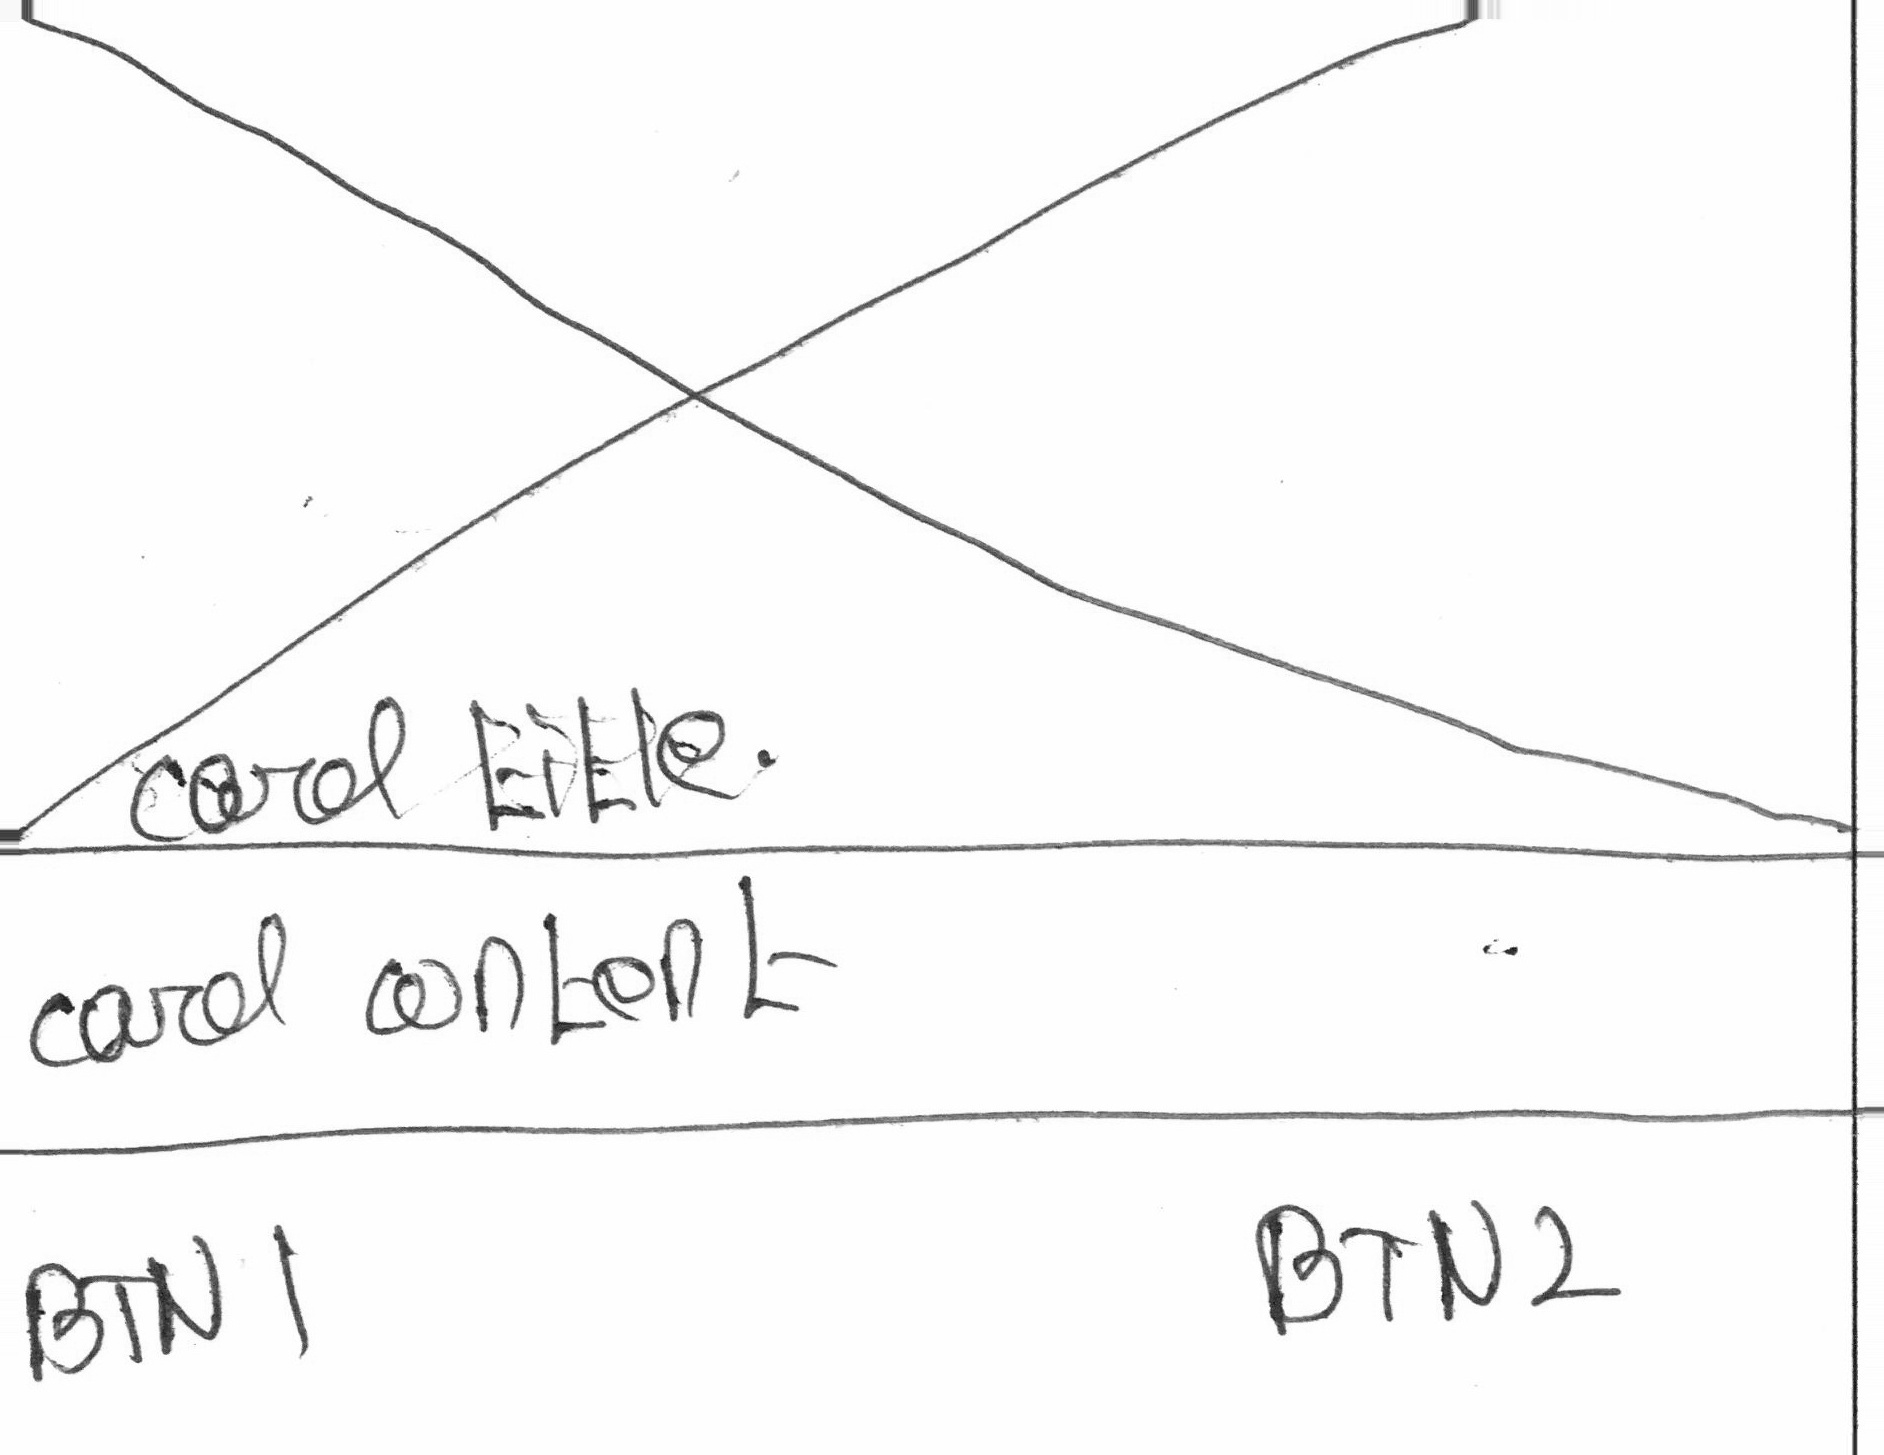 card title.
card content
BTN 1
BTN 2